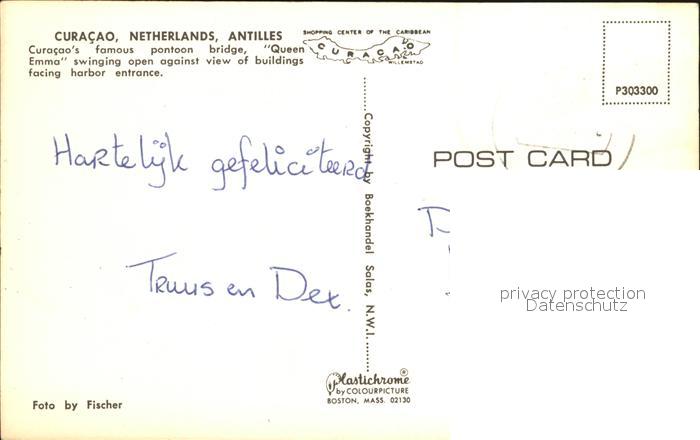 CURAÇAO, NETHERLANDS, ANTILLES
Curaçao's famous pontoon bridge, "Queen
Emma" swinging open against view of buildings
facing harbor entrance.
SHOPPING CENTER OF THE CARIBBEAN
CURAÇAO
WILLEMSTAD
P303300
POST CARD
Hartelijk gefeliciteerd
Truus en Dex.
Copyright by Boekhandel Salas, N.W.I.
privacy protection
Datenschutz
Plastichrome®
by COLOURPICTURE
BOSTON, MASS. 02130
Foto by Fischer